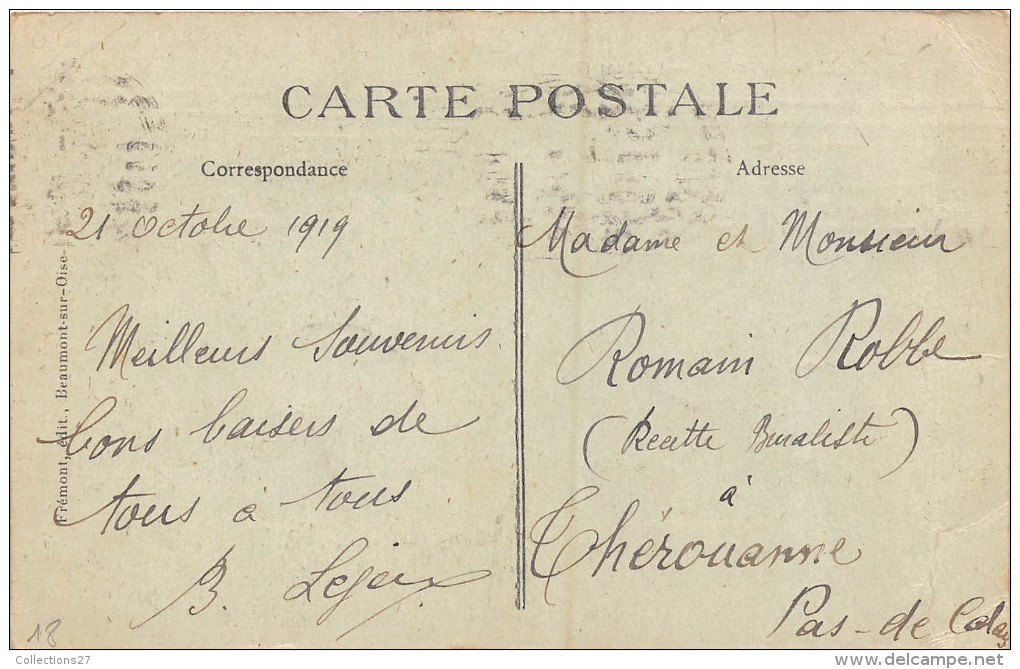 CARTE POSTALE
Correspondance
21 octobre 1919
Meilleurs Souvenirs
bons baisers de
tous à tous
B.
Adresse
Madame et Monsieur
Romain Robbe
(Recette Buraliste)
à
Thérouanne
Pas-de Calais
Frémont, édit., Beaumont-sur-Oise
18
Collections27
www.delcampe.net